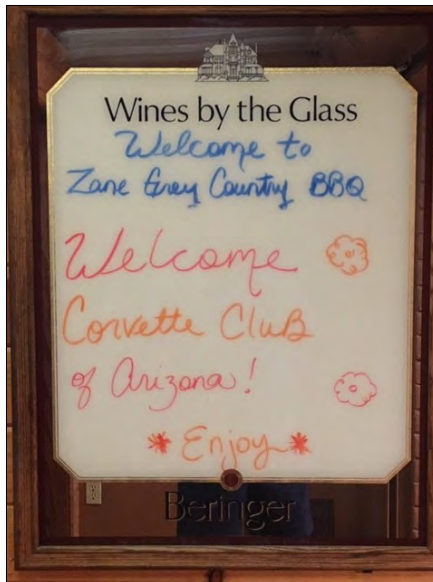 Wines by the Glass
Welcome to
Zane Grey Country BBQ
Welcome
Corvette Club
of Arizona!
*Enjoy*
Beringer